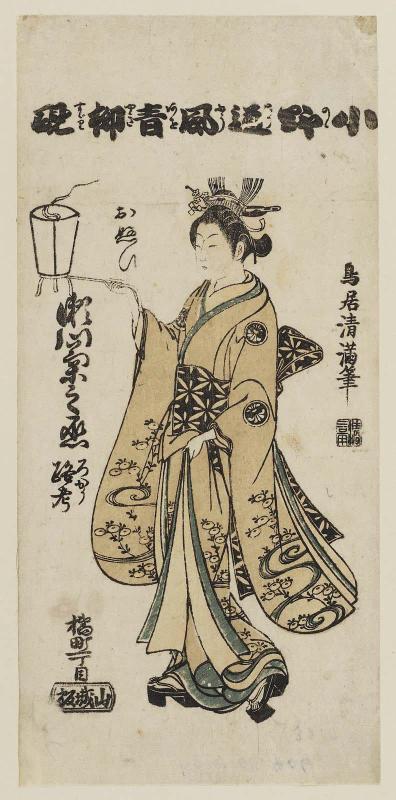 小野道風青柳硯
鳥居清満筆
おぬひ
瀬川菊之丞
路考
ろかう
橘町一丁目
山城板